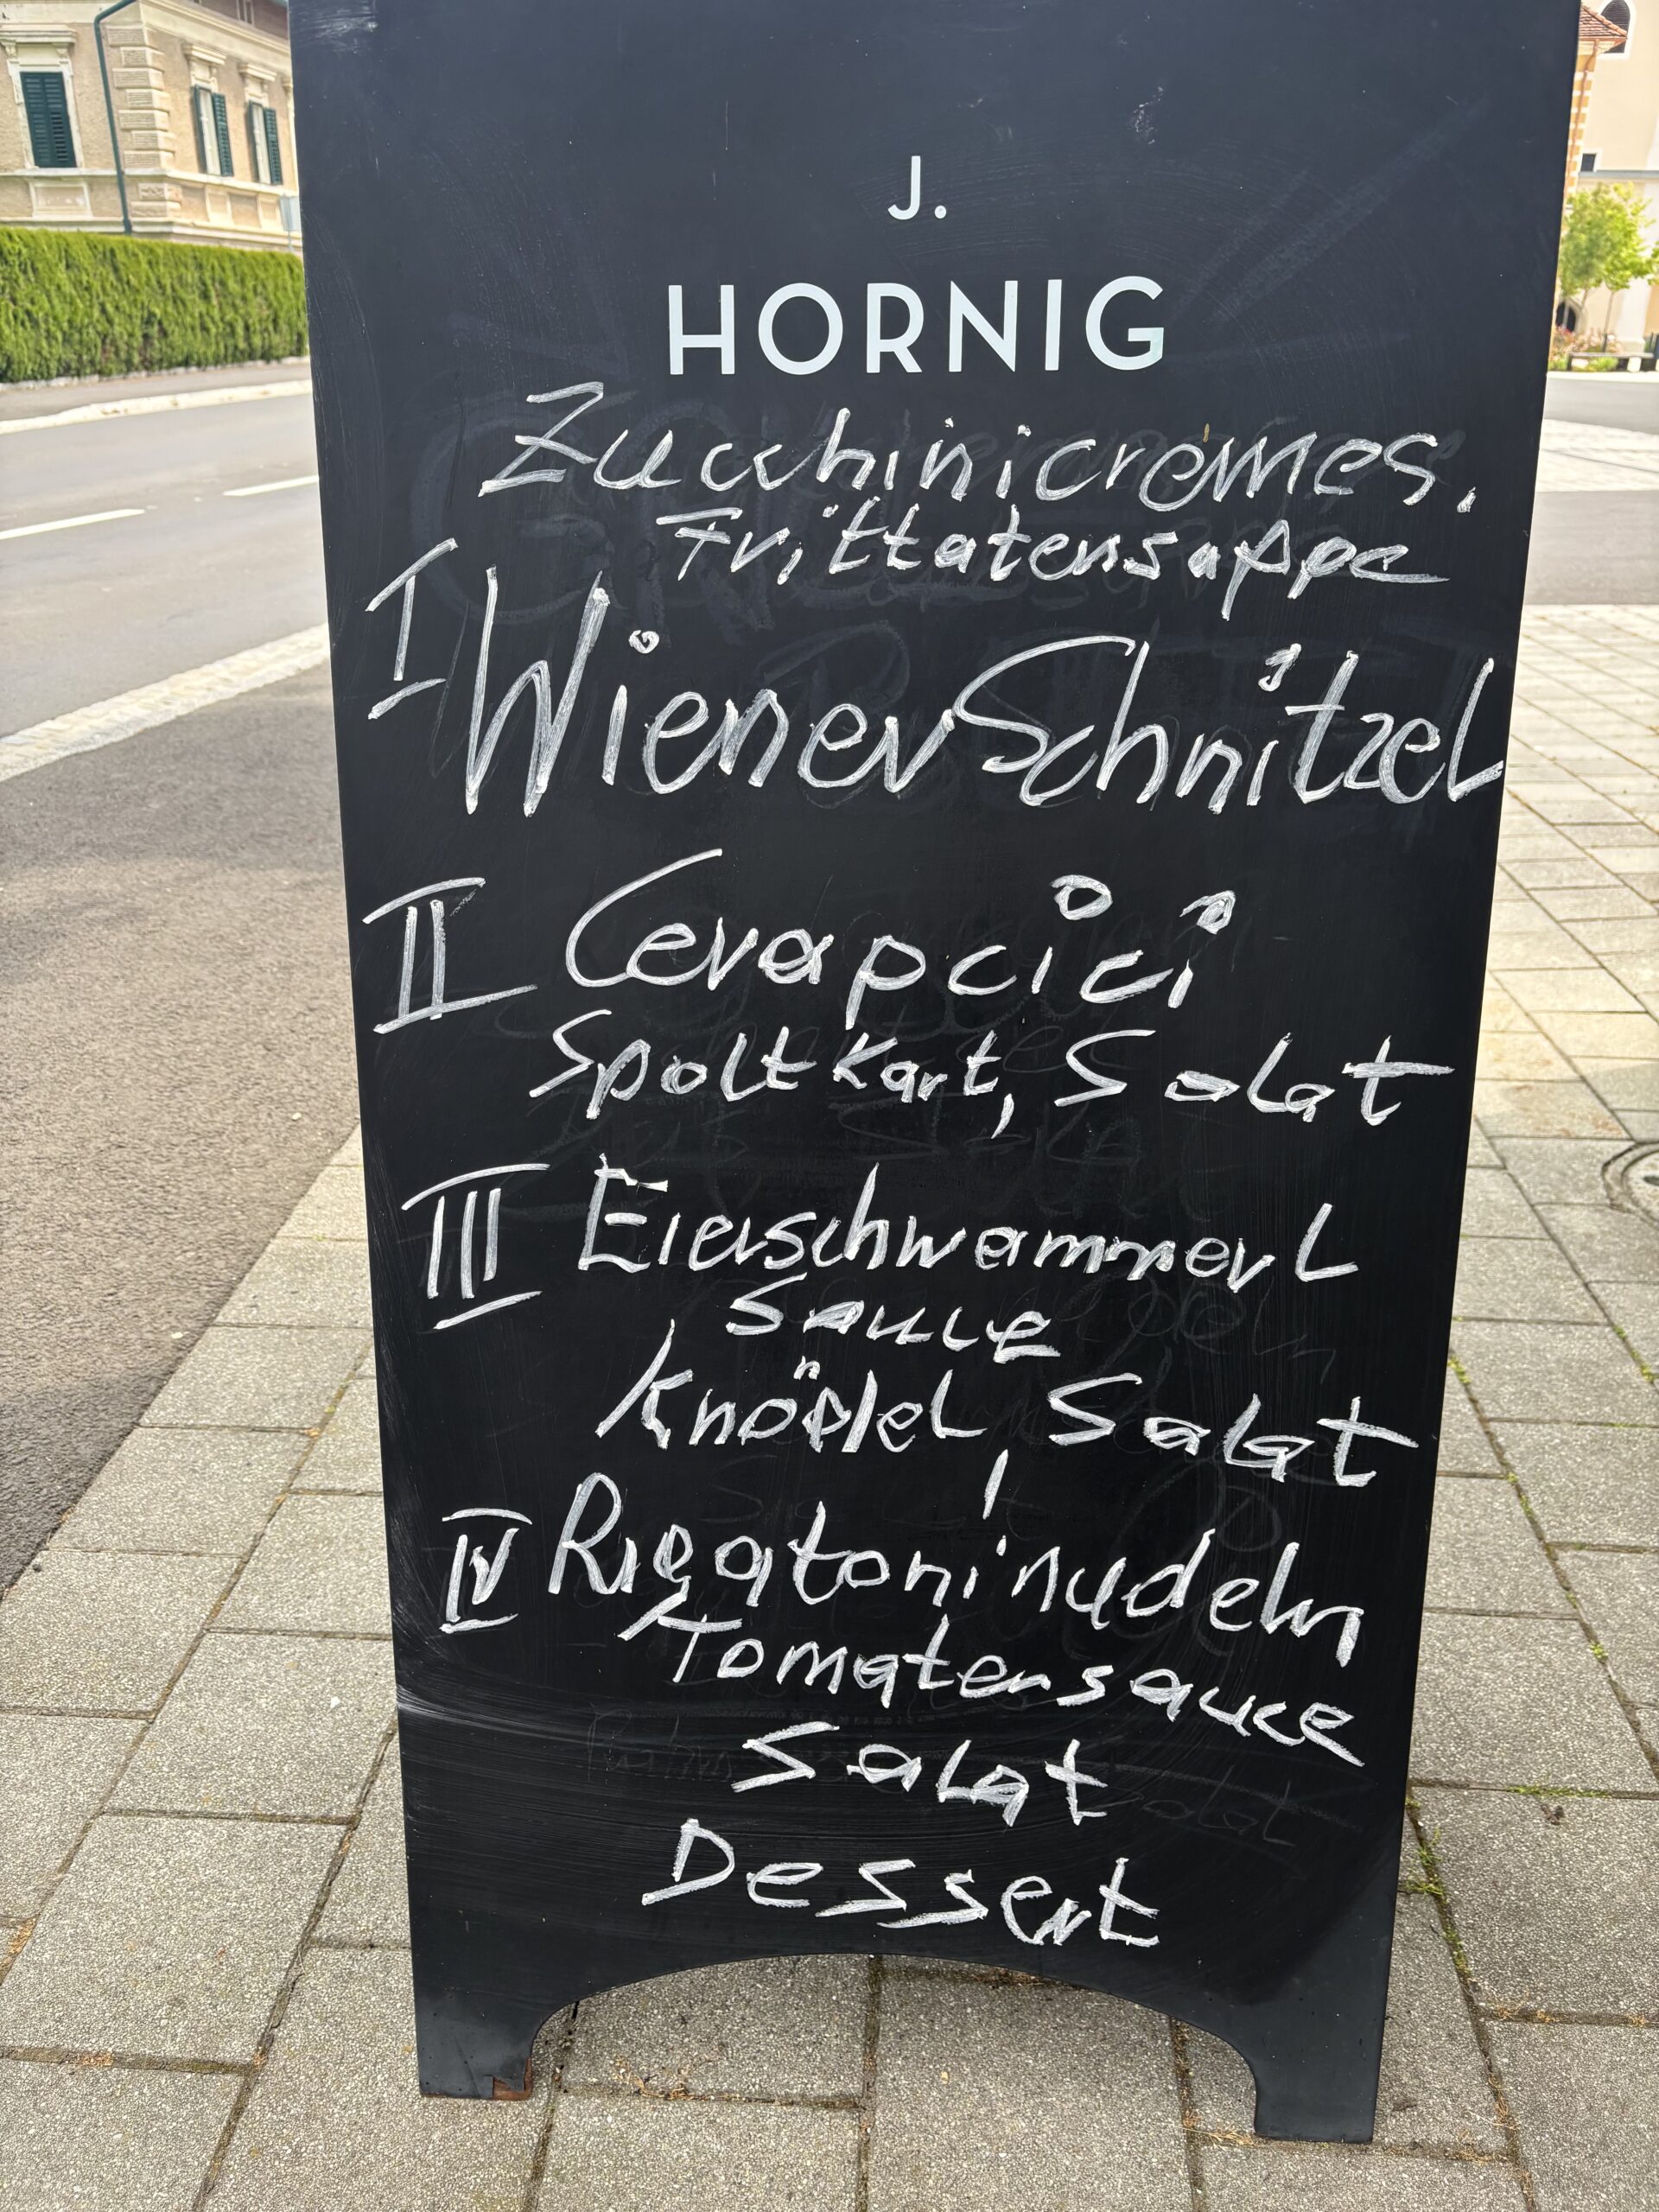 J.
HORNIG
Zucchinicremes.
Frittatensuppe
I Wiener Schnitzel
II Cevapcici
Spaltkart, Salat
III Eierschwammerl
Sauce
Knödel, Salat
IV Rigatoninudeln
Tomatensauce
Salat
Dessert